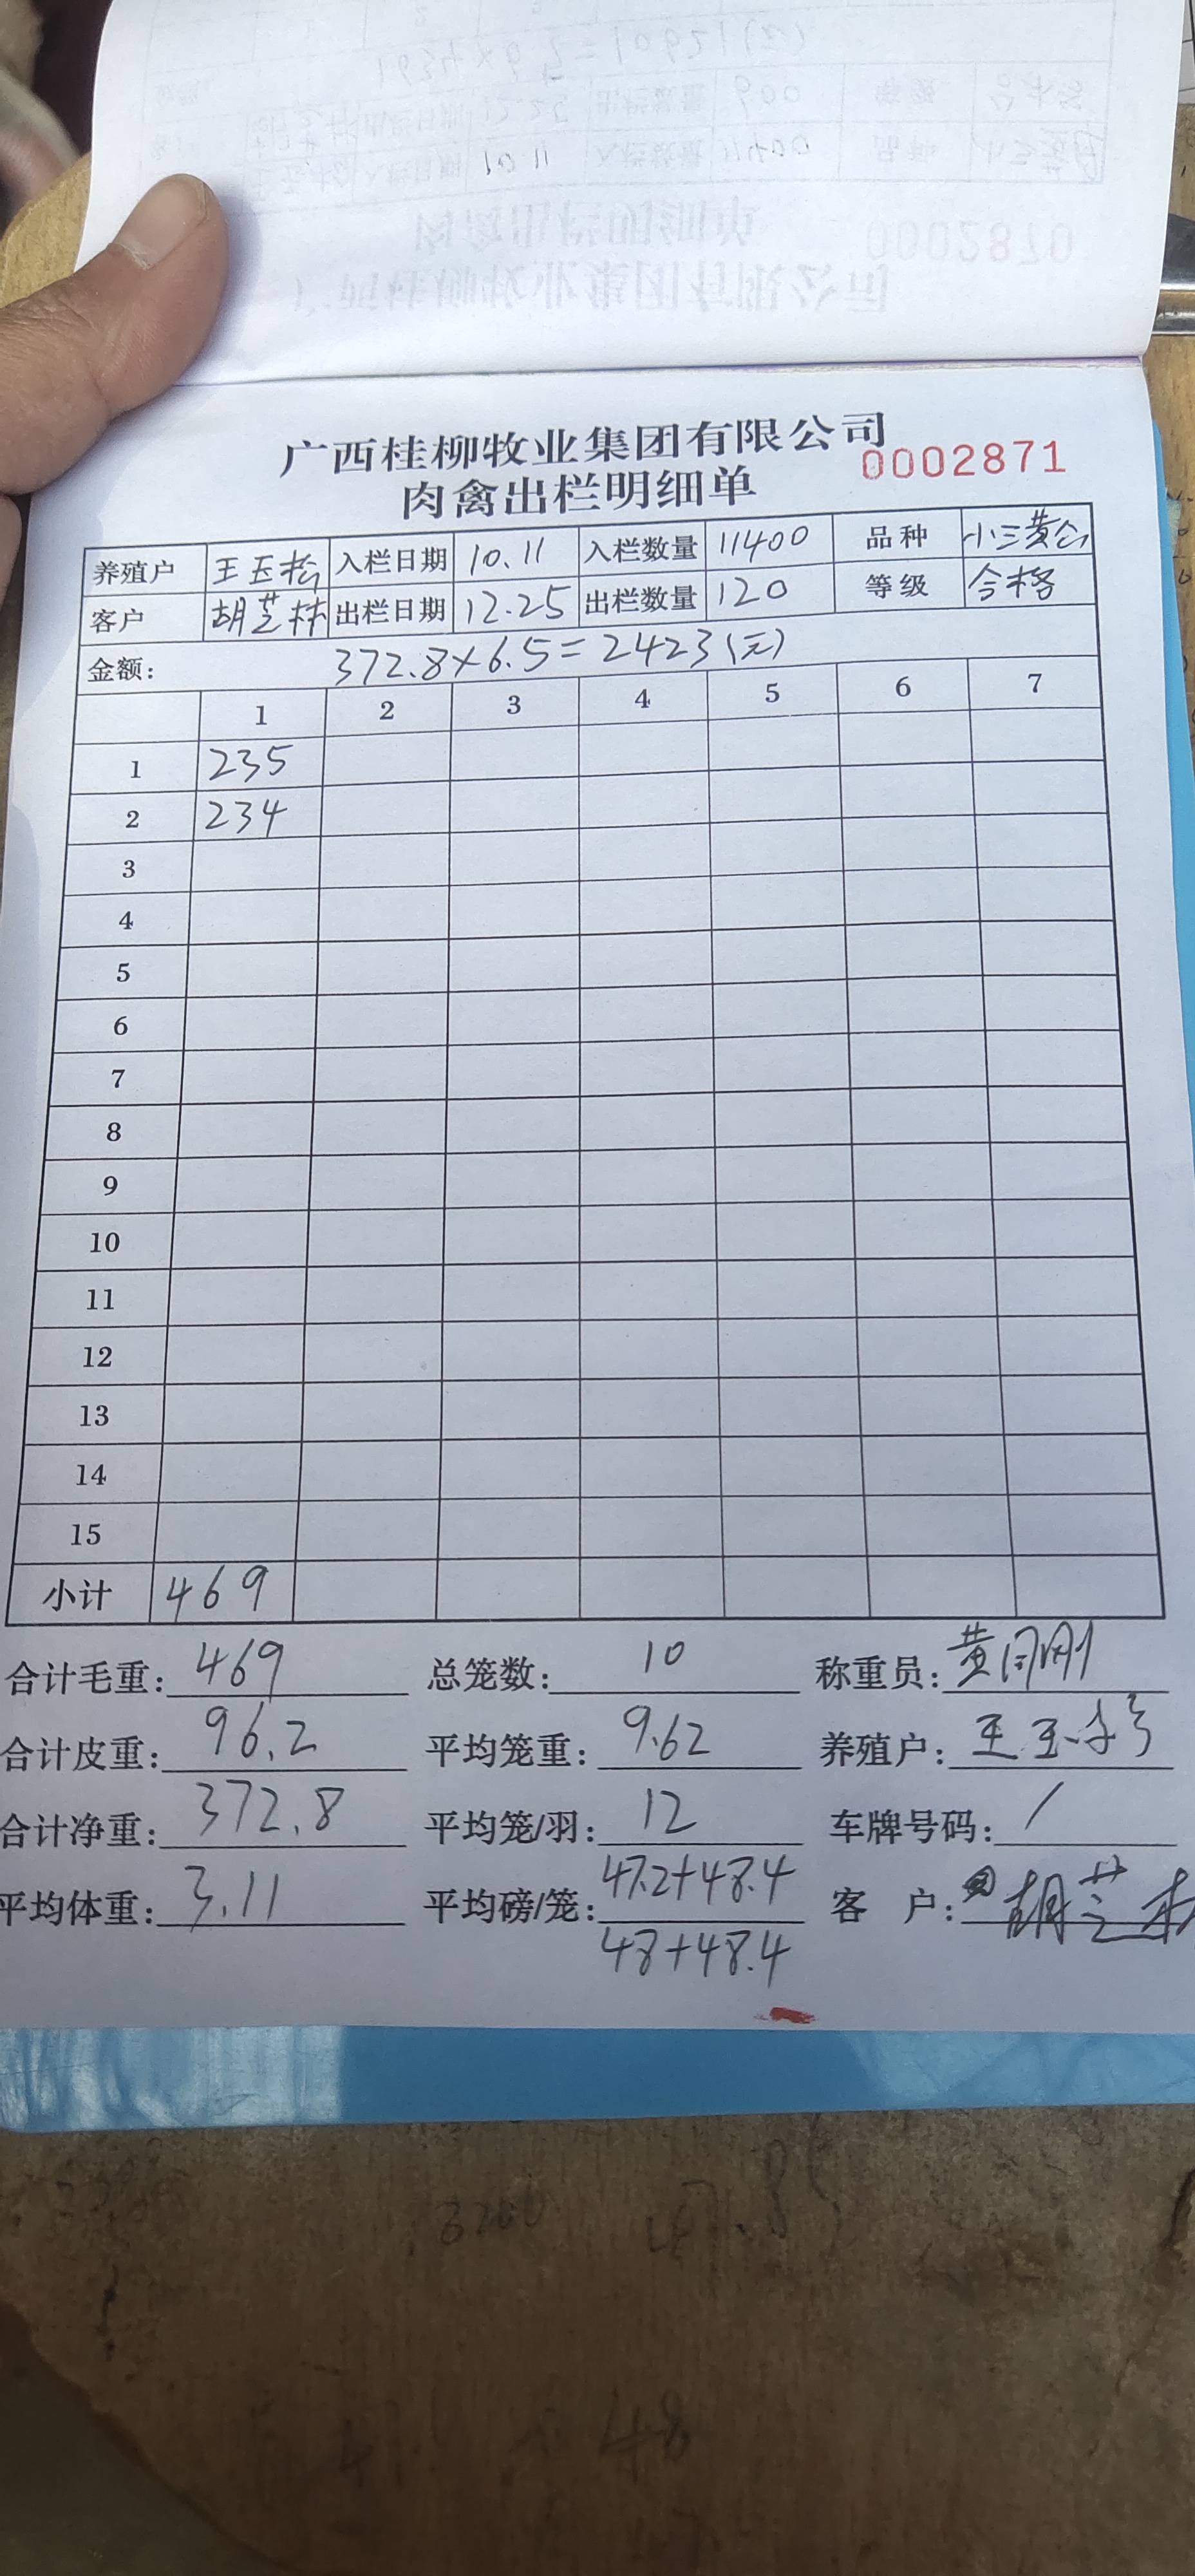 广西桂柳牧业集团有限公司
肉禽出栏明细单 0002871
养殖户 王玉松 入栏日期 10.11 入栏数量 11400 品种 小三黄公
客户 胡芝林 出栏日期 12.25 出栏数量 120 等级 合格
金额: 372.8×6.5=2423(元)
1 2 3 4 5 6 7
1 235
2 234
3
4
5
6
7
8
9
10
11
12
13
14
15
小计 469
合计毛重: 469 总笼数: 10 称重员: 黄同刚
合计皮重: 96.2 平均笼重: 9.62 养殖户: 王玉
合计净重: 372.8 平均笼/羽: 12 车牌号码: /
平均体重: 3.11 平均磅/笼: 47.2+48.4 客户: 胡芝林
48+48.4